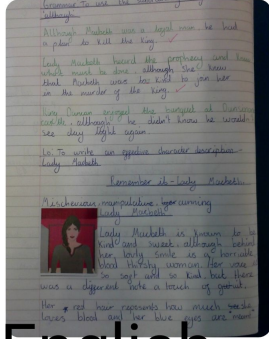 Grammar: To use the
'although'
Although Macbeth was a loyal man, he had
a plan to kill the king.
Lady Macbeth heard the prophecy and knew
what must be done, although she knew
that Macbeth was too kind to join her
in the murder of the king.
King Duncan enjoyed the banquet at
castle, although he didn't know he wouldn't
see day light again.
L.o. To write an effective character description -
Lady Macbeth
Remember it - Lady Macbeth
Mischievous, manipulative, cunning
Lady Macbeth
Lady Macbeth is known to be
kind and sweet, although behind
her lovly smile is a horrible
blood thirsty woman. Her voice is
so soft and so kind but there
was a different note a touch of
Her red hair represents how much she
loves blood and her blue eyes are
English